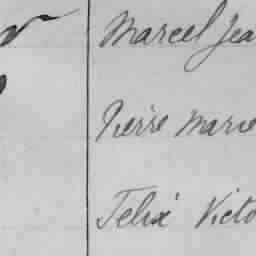 Marcel Jea
Pierre Marie
Felix Victo